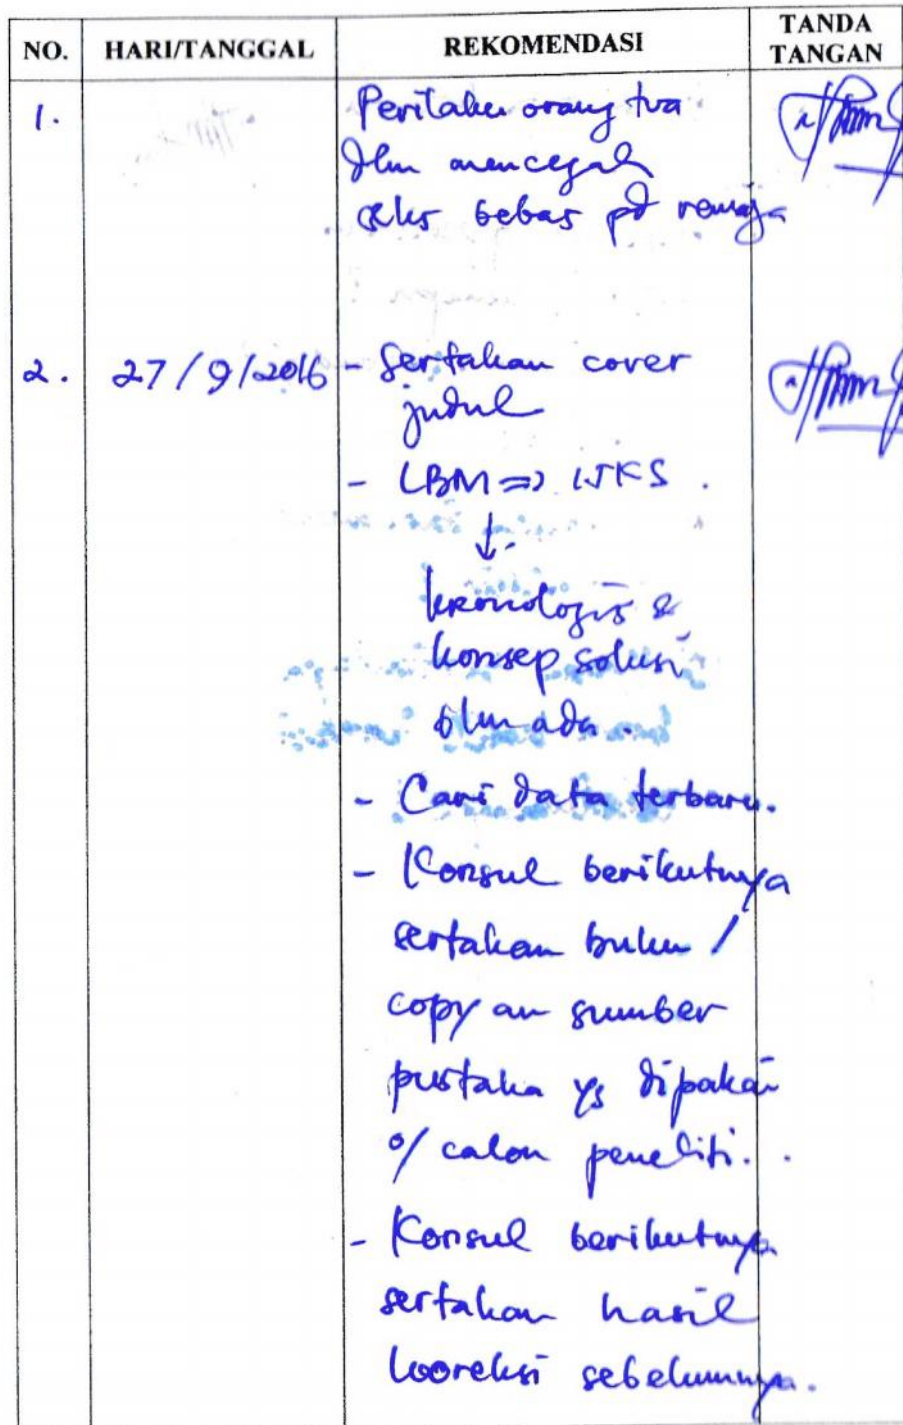 NO. HARI/TANGGAL REKOMENDASI TANDA TANGAN
1. Perilaku orang tua
dlm mencegah
seks bebas pd remaja
2. 27/9/2016 - Sertakan cover
judul
- LBM => IJKS.
↓
kronologis &
konsep solusi
blm ada.
- Cari data terbaru.
- Konsul berikutnya
sertakan buku /
copy an sumber
pustaka yg dipakai
o/ calon peneliti.
- Konsul berikutnya
sertakan hasil
kooreksi sebelumnya.